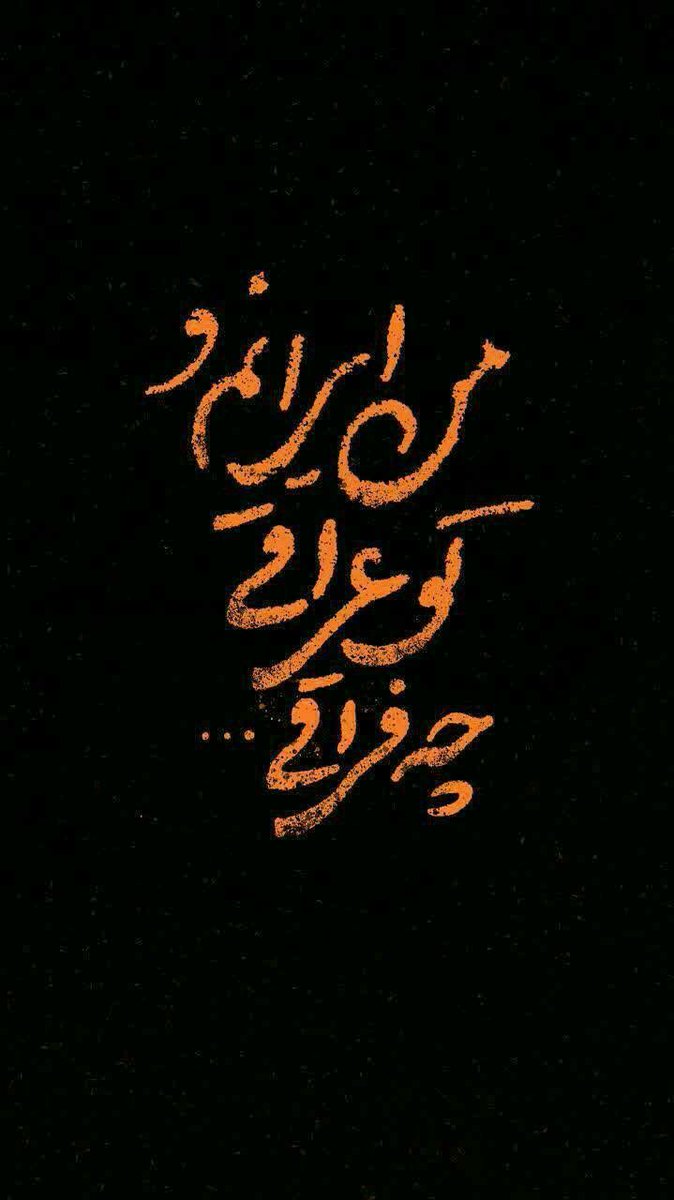 من ایرانم و
تو عراقی
چه فراقی...